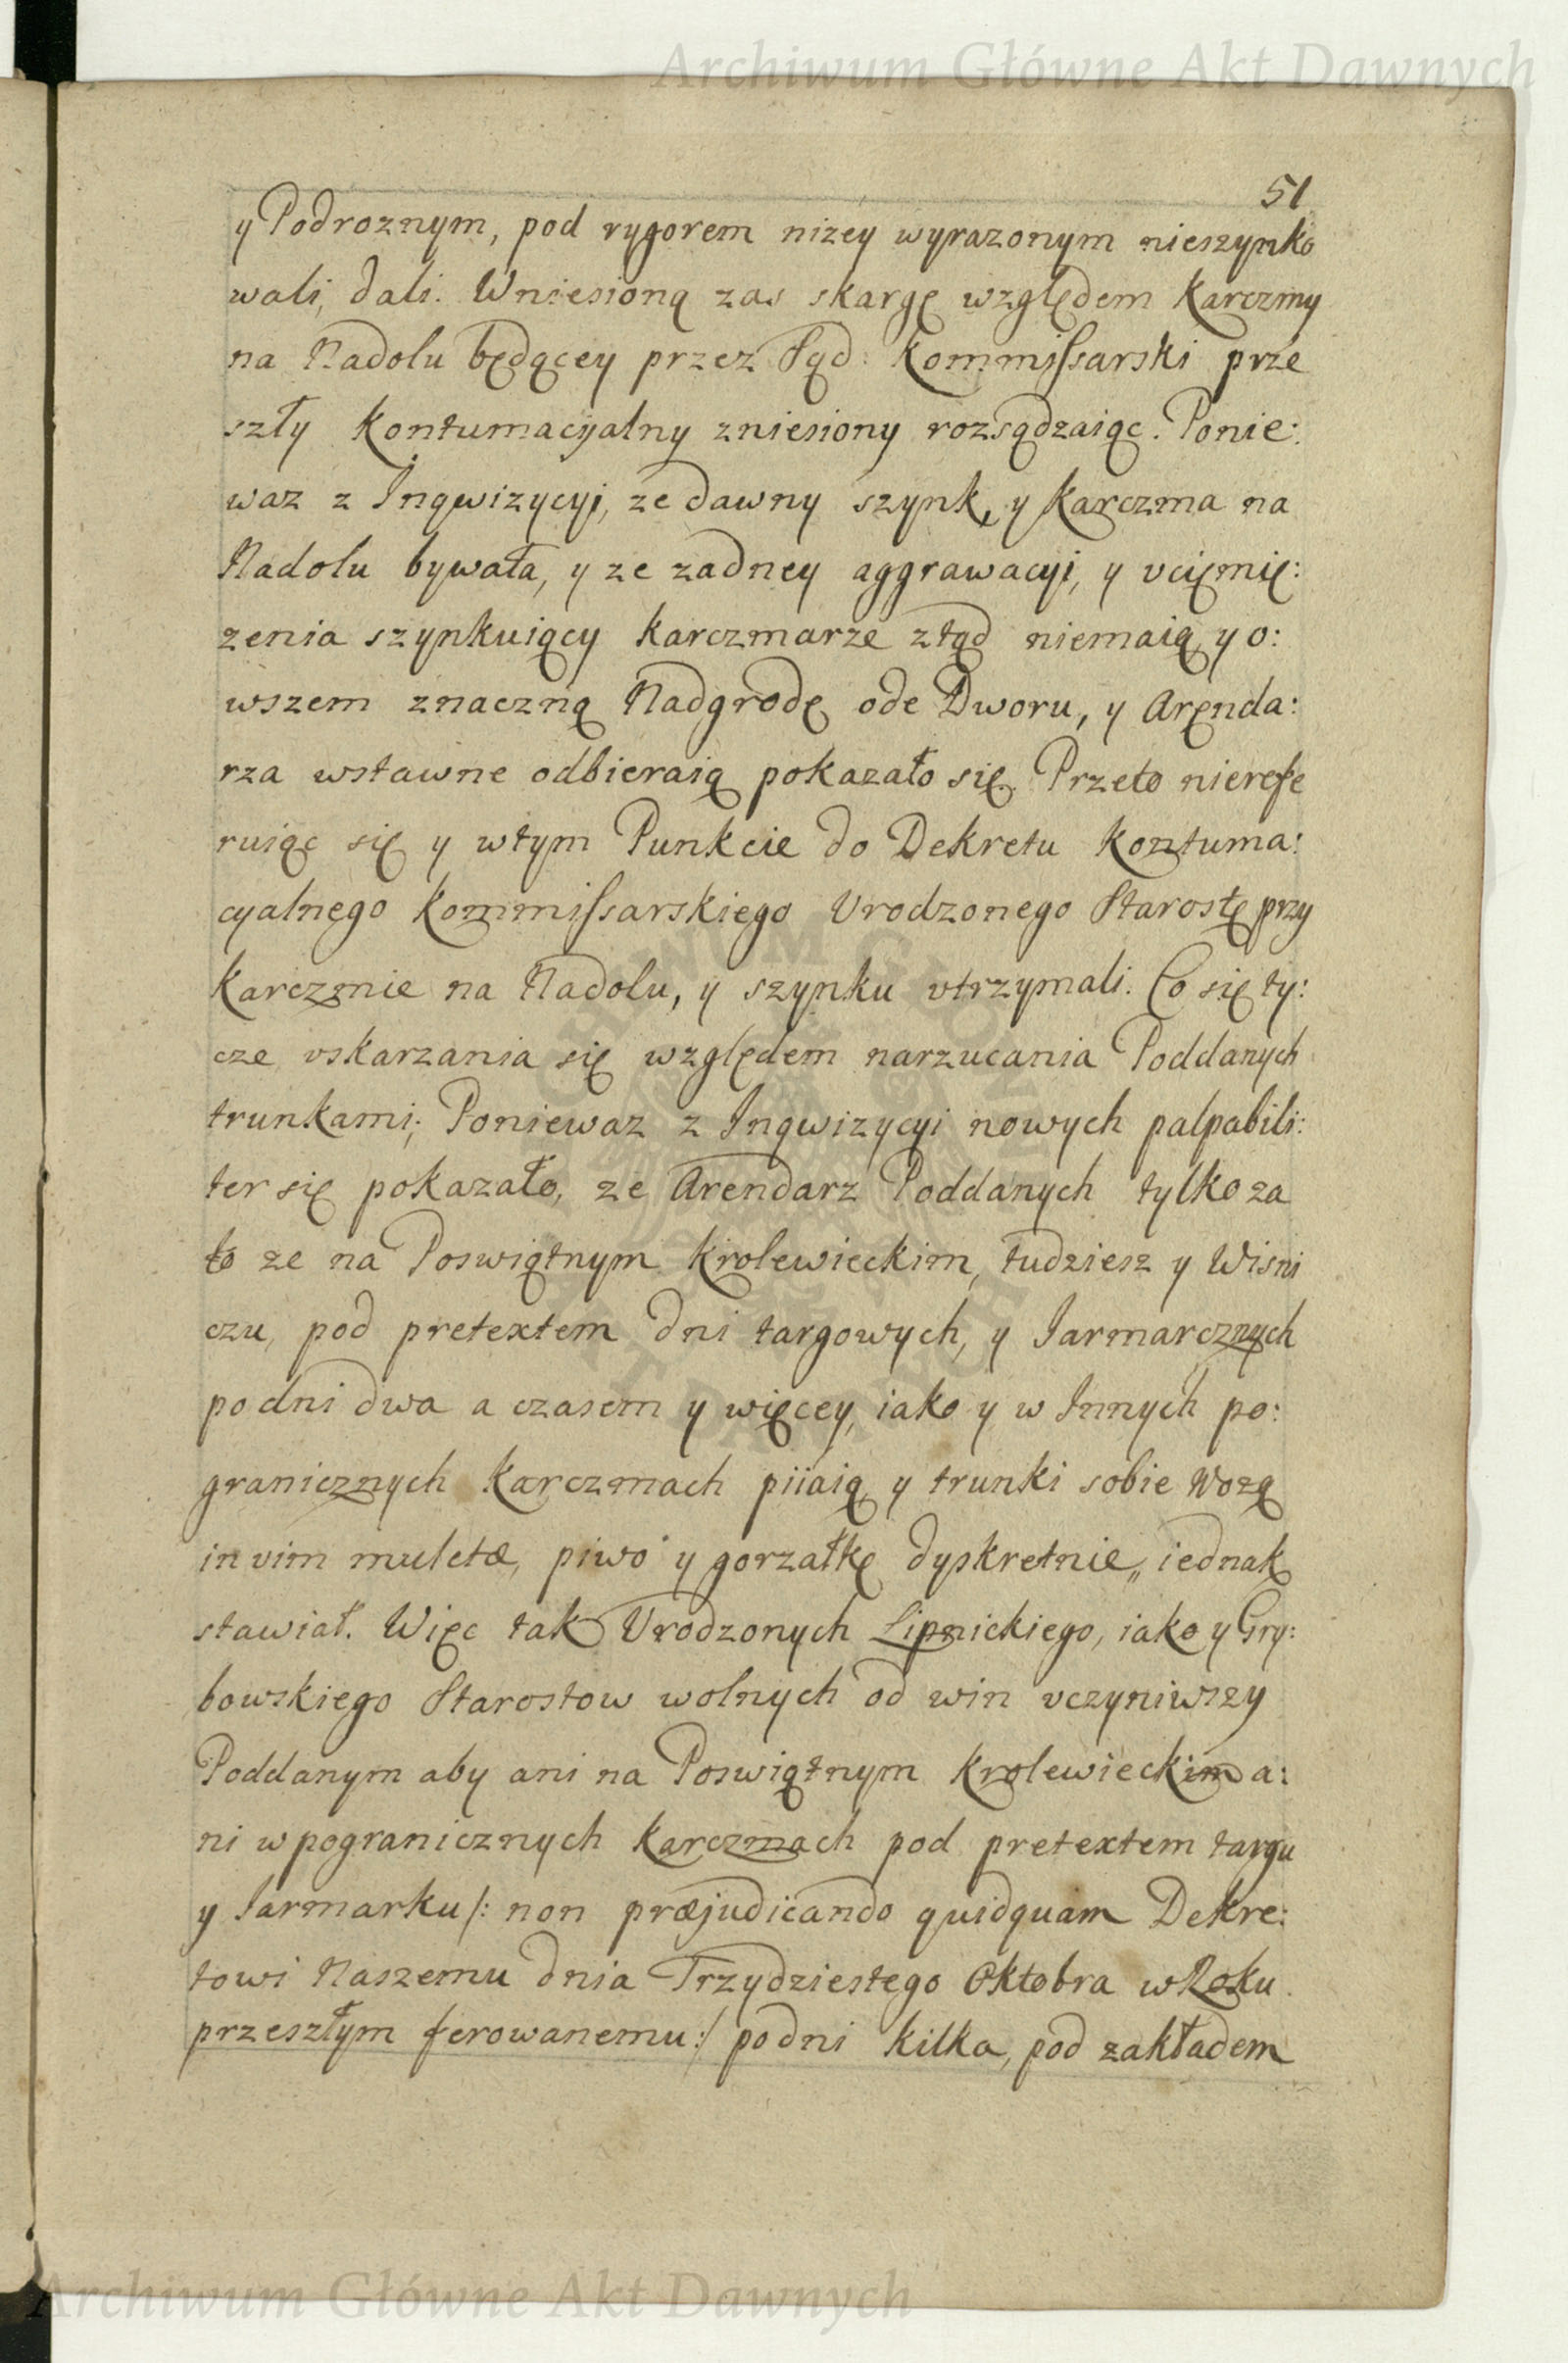 Archiwum Główne Akt Dawnych
51
y Podroznym, pod rygorem nizey wyrazonym nieszynko
wali, dali. Wniesioną zas skargę względem Karczmy
na Nadolu będącey przez Sąd: Kommissarski prze
szły Kontumacyalny zniesiony rozsądzaiąc. Ponie:
waz z Inqwizycyi, ze dawny szynk, y Karczma na
Nadolu bywała, y ze zadney aggrawacyi, y vcięmię:
zenia szynkuiący Karczmarze ztąd niemaią, y o:
wszem znaczną Nadgrodę ode Dworu, y Aręnda:
rza wstawne odbieraią pokazało się. Przeto nierefe
ruiąc się y wtym Punkcie do Dekretu Kontuma:
cyalnego Kommissarskiego Vrodzonego Starostę przy
Karczmie na Nadolu, y szynku vtrzymali. Co się ty:
cze vskarzania się względem narzucania Poddanych
trunkami; Poniewaz z Inqwizycyi nowych palpabili:
ter się pokazało, ze Arendarz Poddanych tylko za
to ze na Poswiątnym Krolewieckim, tudziesz y Wisni
czu, pod pretextem dni targowych, y Jarmarcznych
po dni dwa a czasem y więcey, iako y w Innych po:
granicznych Karczmach piiaią, y trunki sobie wozą
in vim muletæ, piwo y gorzałkę dyskretnie,, iednak
stawiał. Więc tak Vrodzonych Lipnickiego, iako y Gry:
bowskiego Starostow wolnych od win vczyniwszy
Poddanym aby ani na Poswiątnym Krolewieckim a:
ni w pogranicznych Karczmach pod pretextem targu
y Jarmarku /: non præjudicando quidquam Dekre:
towi Naszemu dnia Trzydziestego Oktobra w Roku
przeszłym ferowanemu :/ po dni kilka, pod zakładem
Archiwum Główne Akt Dawnych